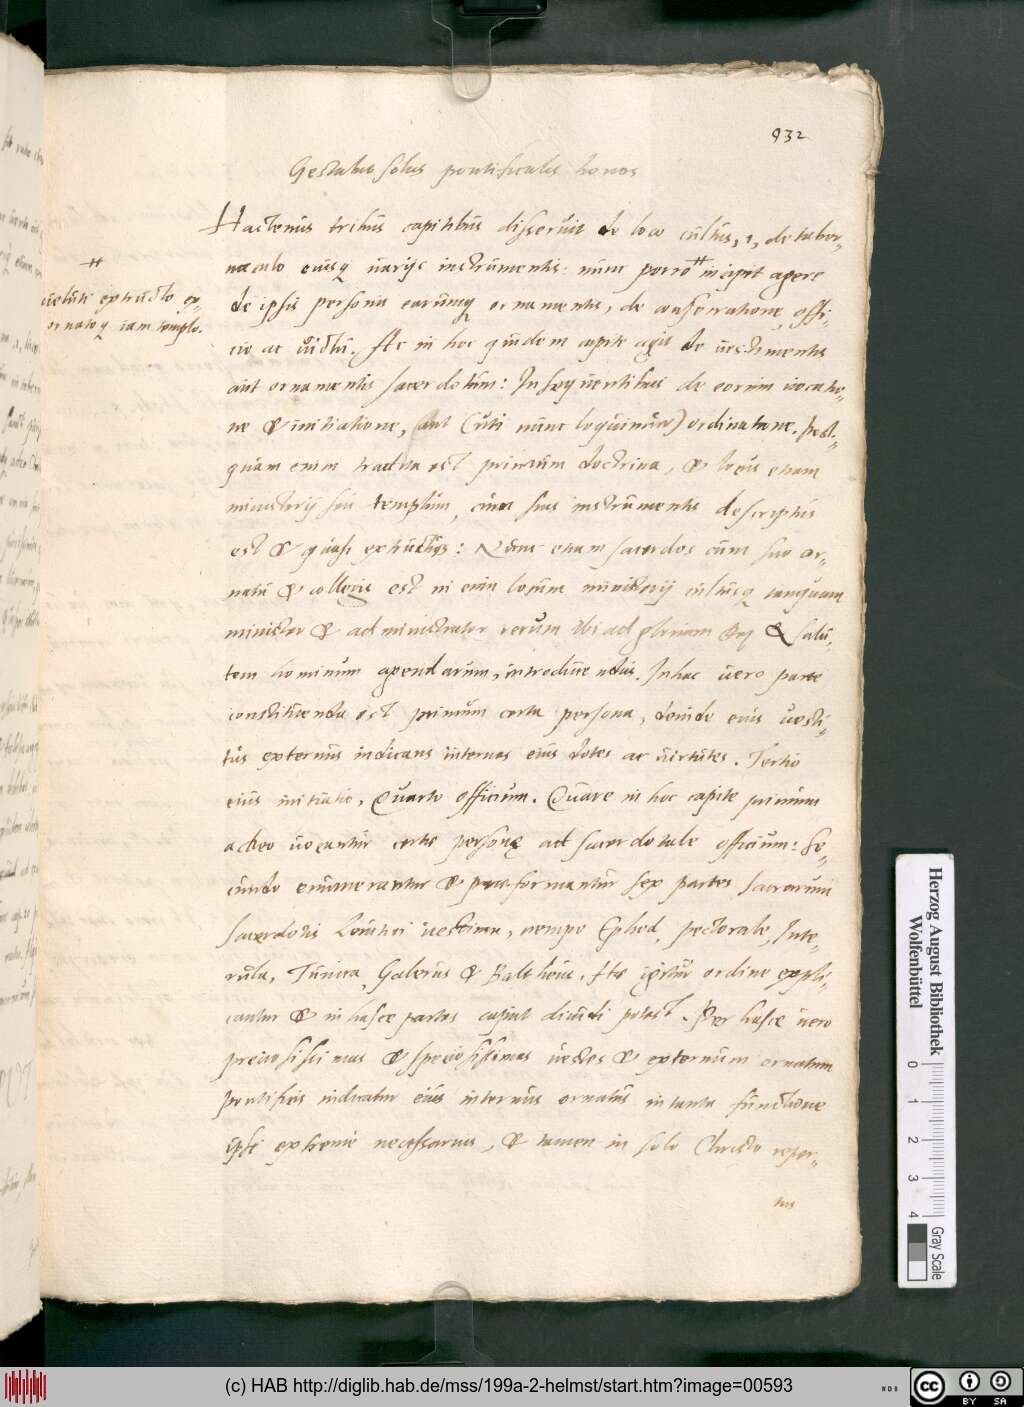 932
Gestatus solus pontificalis honos
Hactenus tribus capitibus disseruit de loco cultus, 1, de taber„
naculo eiusq varijs instrumentis: nunc porro # incipit agere
# ueluti extructo ex„
ornatoq iam templo.
de ipsis personis earumq ornamentis, de consecratione, offi„
cio ac uictu. Ac in hoc quidem capite agit de uestimentis
aut ornamentis sacerdotum: In sequentibus de eorum uocatio„
ne & initiatione, aut (uti nunc loquimur) ordinatione. Post„
quam enim tradita est primum doctrina, & locus etiam
ministerij seu templum, cum suis instrumentis descriptus
est & quasi extructus: Nunc etiam sacerdos cum suo or„
natu & collegis est in eum locum ministerij cultusq tanquam
minister & administrator rerum ibi ad gloriam Dei & salu„
tem hominum agendarum, introducendus. In hac uero parte
constituenda est primum certa persona, deinde eius uesti„
tus externus indicans internas eius dotes ac uirtutes. Tertio
eius initiatio, Quarto officium. Quare in hoc capite primum
adeo uocantur certae personę ad sacerdotale officium: Se„
cundo enumerantur & formantur sex partes sacrarum
sacerdotis Leuitici uestium, nempe Ephod, pectorale, Inte„
rula, Tunica, Galerus & Baltheus. Hae igitur ordine expli„
cantur & in hasce partes caput diuidi potest. Per hasce uero
preciosissimas & speciosissimas uestes & externum ornatum
pontificis indicatur eius internus ornatus in tanta functione
ipsi extreme necessarius, & tamen in solo Christo reper„
tus
Herzog August Bibliothek
Wolfenbüttel
0 1 2 3 4
Gray Scale
(c) HAB http://diglib.hab.de/mss/199a-2-helmst/start.htm?image=00593
cc BY SA